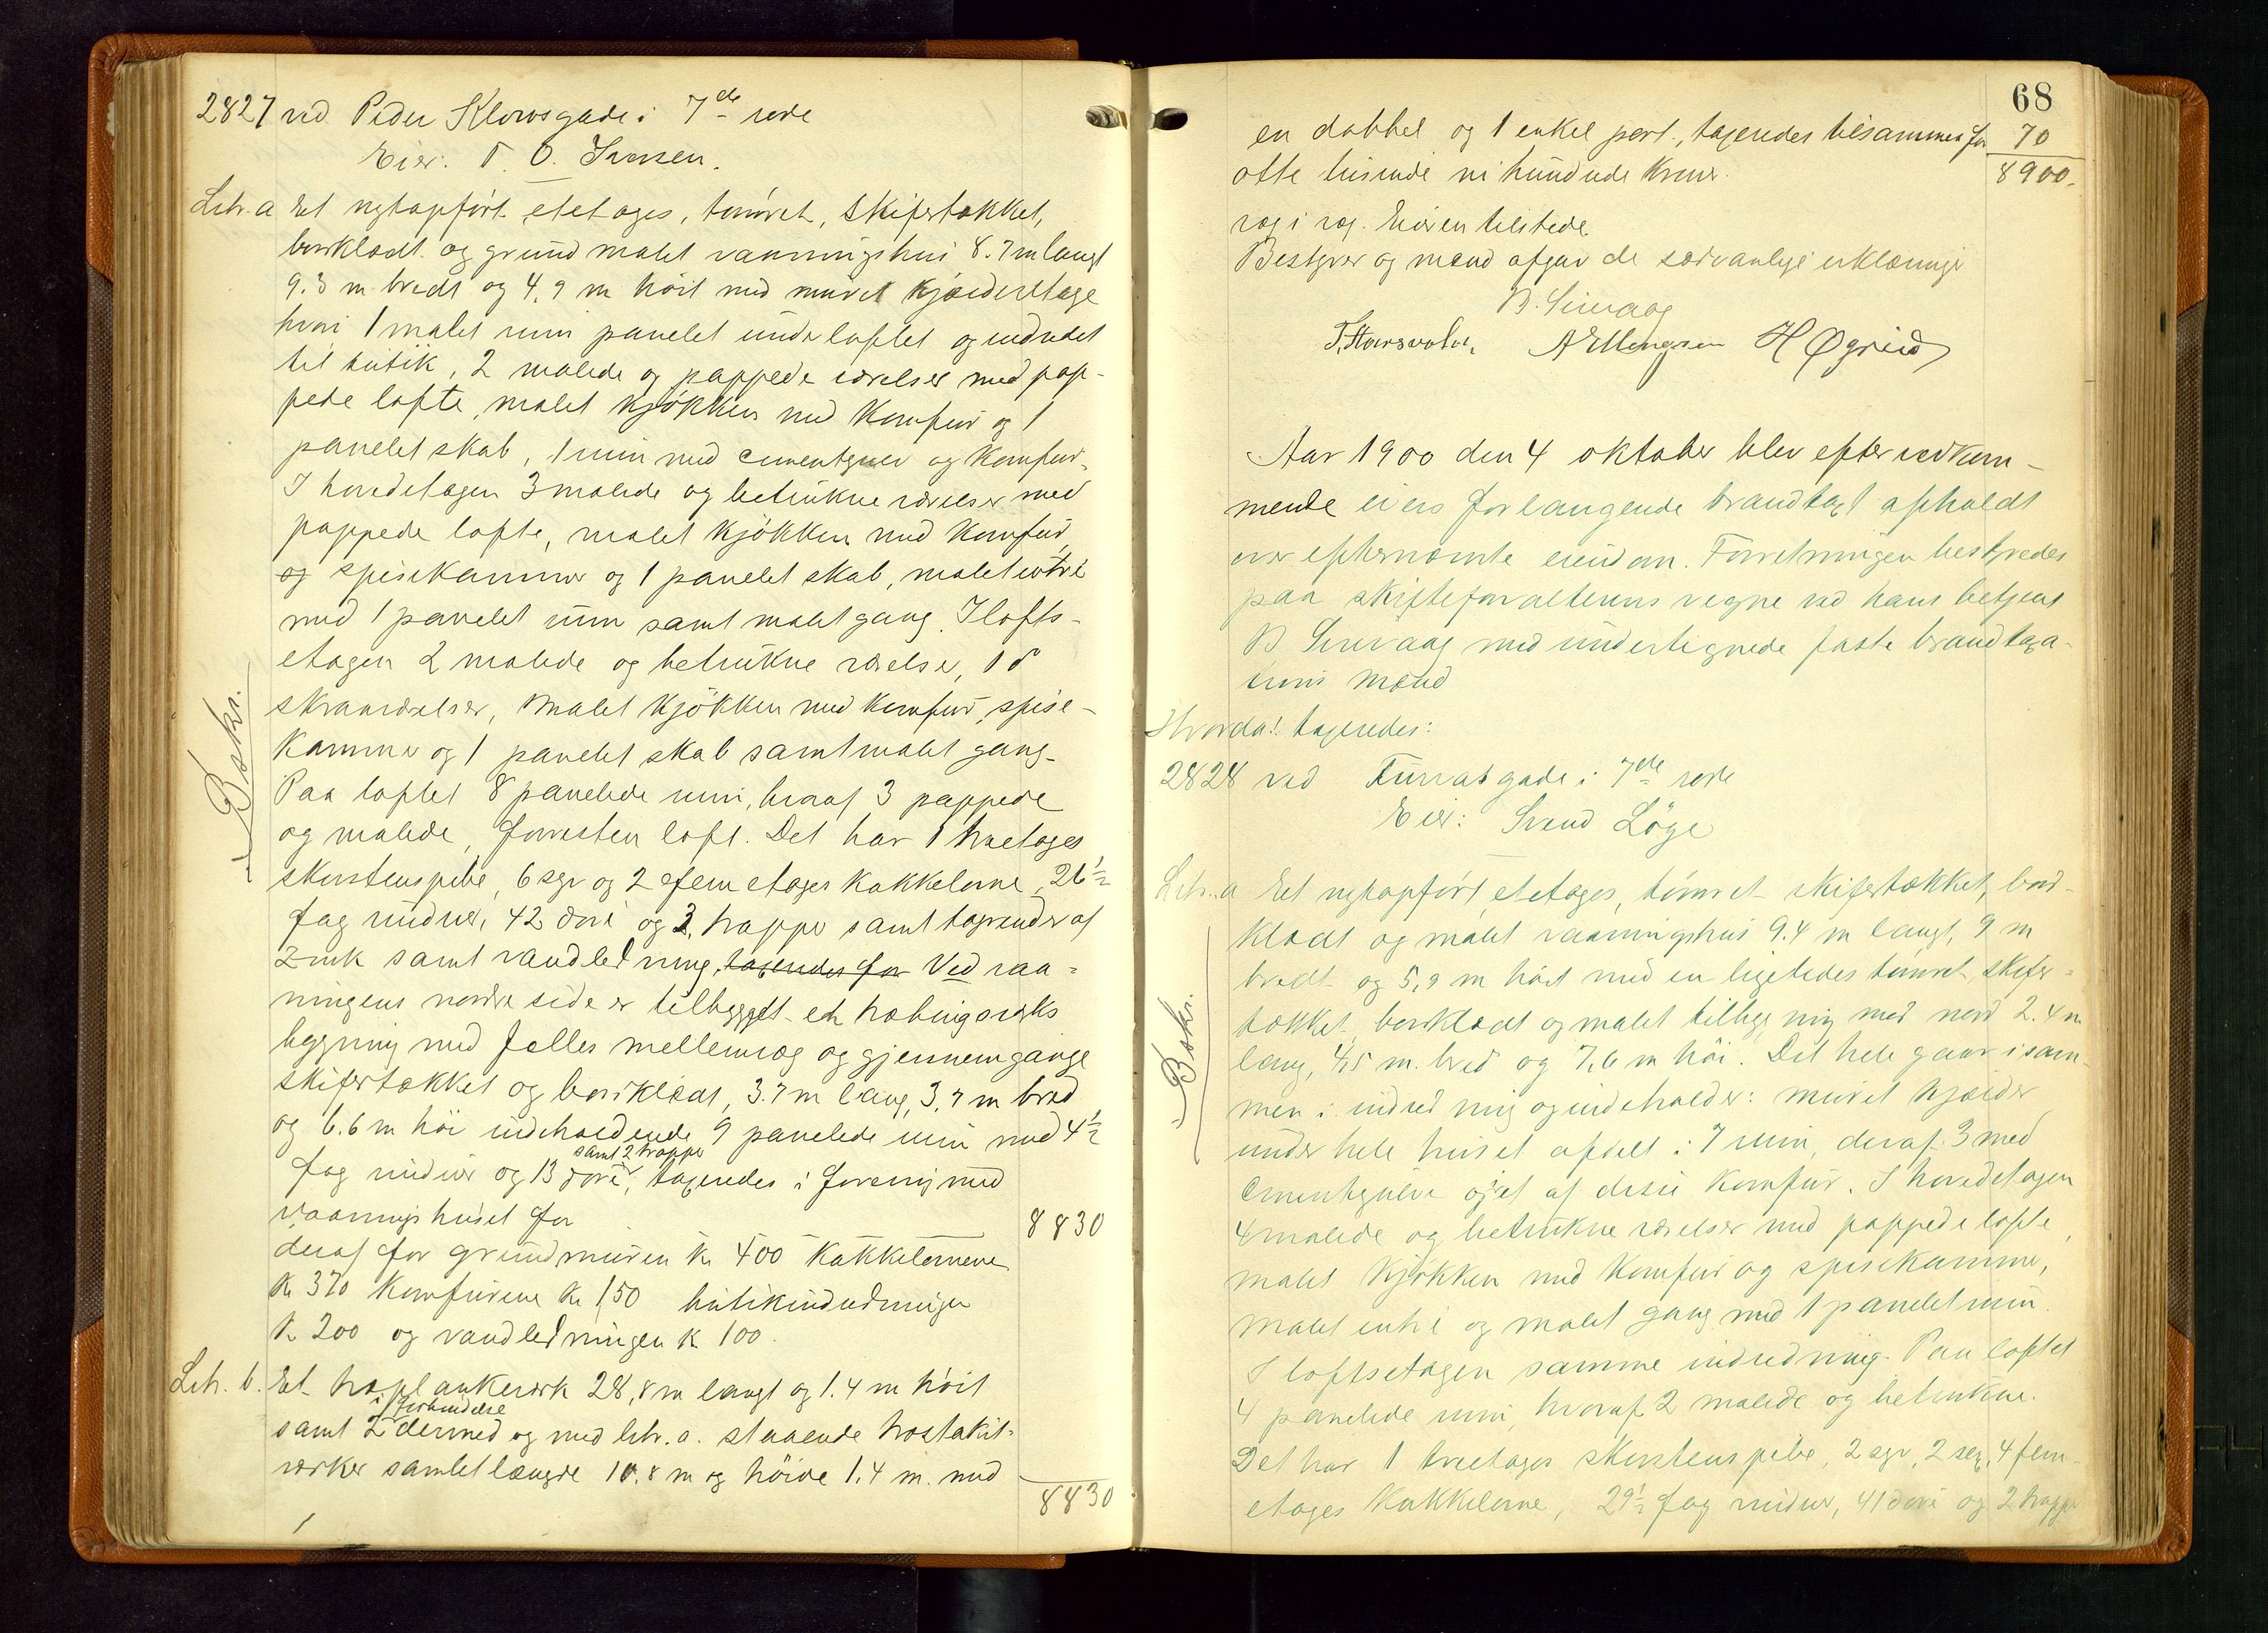 2827 ved Peder Klowsgade i 7de rode
Eier: T. O. Iversen.
Litr. a Et nyt opført etetages, tømret, skifertækket,
bordklædt og grundmalet vaaningshus 8.7 m langt
9.3 m bredt og 4,9 m høit med muret kjælderetage
hvori 1 malet rum panelet under loftet og indredet
til butik, 2 malede og pappede værelser med pap-
pede lofte, malet kjøkken med komfur og 1
panelet skab, 1 rum med cementgulv og komfur.
I hovedetagen 3 malede og betrukne værelser med
pappede lofte, malet kjøkken med komfur
og spisekammer og 1 panelet skab, malet entre
med 1 panelet rum samt malet gang. I lofts-
etagen 2 malede og betrukne værelser,
skraaværelser, malet kjøkken med komfur, spise-
kammer og 1 panelet skab samt malet gang.
Paa loftet 8 panelede rum, hvoraf 3 pappede
og malede, forresten loft. Det har 1 treetages
skorstenspibe, 6 søgr og 2 femetages kakkelovne, 26 1/2
fag vinduer, 42 døre og 3 trapper samt tagrender af
zink samt vandledning, taxeredes for Ved vaa-
ningens nordre side er tilbygget en træbindingsverks
bygning med fælles mellemvæg og gjennemgange
skifertækket og bordklædt, 3.7 m lang, 3,7 m bred
og 6.6 m høi indeholdende 9 panelede rum med 4 1/2
samt 2 trapper
fag vinduer og 13 døre, taxeredes i forening med
vaaningshuset for 8830
deraf for grundmuren k 400 kakkelovnene
k 370 komfurene k 150 butikindredningen
k 200 og vandledningen k 100.
Litr. b. Et træplankeverk 28,8 m langt og 1.4 m høit
i forbindelse
samt 2 dermed og med litr. a. staaende træstakit-
verker samlet længde 10.8 m og høide 1.4 m. med
8830
Bskr.
68
en dobbel og 1 enkel port, taxeredes tilsammen for 70
otte tusinde ni hundrede kroner. 8900.
væg i væg. Eieren tilstede
Bestyrer og mænd afgav de sædvanlige erklæringer
B. Sirevaag
T. Haarsvoln. A Ellingsen H Øgreid
Aar 1900 den 4 oktober blev efter vedkom-
mende eiers forlangende brandtaxt afholdt
over efternævnte eiendom. Forretningen bestyredes
paa skifteforvalterens vegne ved hans betjent
B Sirevaag med undertegnede faste brandtaxa-
tions mænd
Hvorda! taxeredes:
2828 ved Furrasgade i 7de rode
Eier: Svend Løge
Litr. a Et nyt opført, etetages, tømret skifertækket, bord-
klædt og malet vaaningshus 9.4 m langt, 9 m
bredt og 5,9 m høit med en ligeledes tømret, skifer-
tækket, bordklædt og malet tilbygning mod nord 2.4 m
lang, 4,5 m. bred og 7,6 m høi. Det hele gaar i sam-
men i indredning og indeholder: muret kjælder
under hele huset afdelt i 7 rum, deraf 3 med
Cmentgulve og et af disse komfur. I hovedetagen
4 malede og betrukne værelser med pappede lofte,
malet kjøkken med komfur og spisekammer,
malet entre og malet gang med 1 panelet rum.
I loftsetagen samme indredning. Paa loftet
4 panelede rum, hvoraf 2 malede og betrukne.
Det har 1 treetages skorstenspibe, 2 søgr, 2 sex, 4 fem-
etages kakkelovne, 29 1/2 fag vinduer, 41 døre og 2 trapper
Bskr.